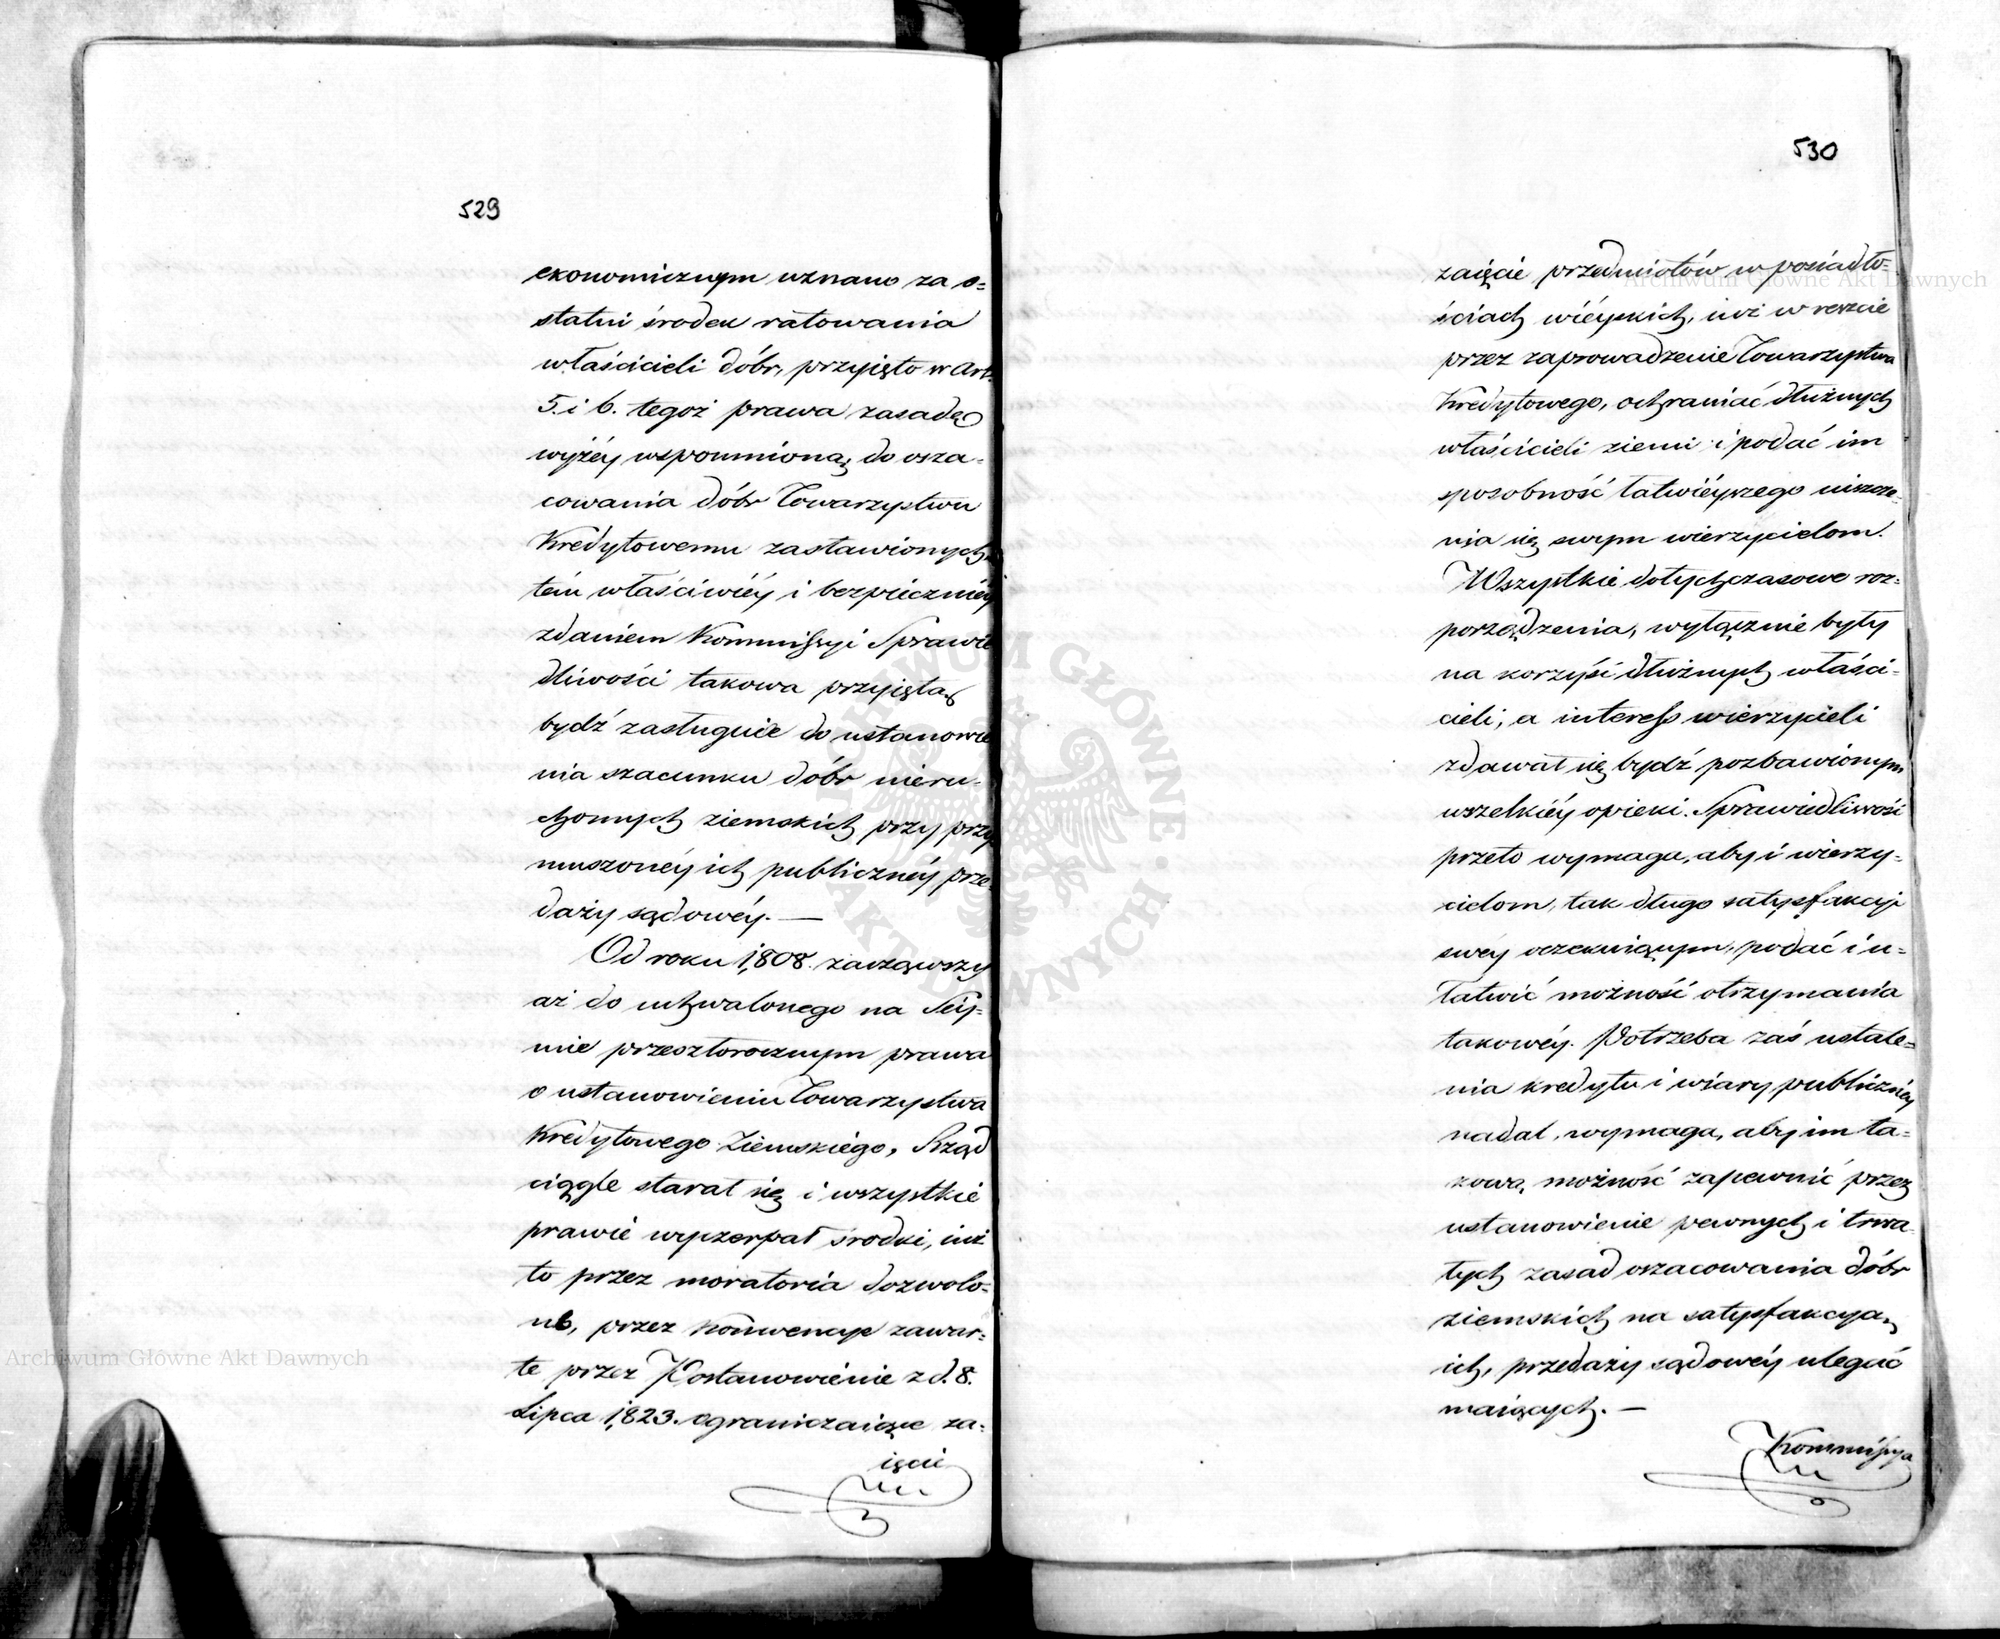 529
ekonomicznym uznano za o=
statni środek ratowania
właścicieli dóbr, przyięto w Art.
5. i 6. tegoż prawa zasadę
wyżéy wspomnioną do osza-
cowania dóbr Towarzystwu
Kredytowemu zastawionych,
tém właściwiéy i bezpieczniéy
zdaniem Kommissyi Sprawie
dliwości takowa przyiętą
bydź zasługuie do ustanowie
nia szacunku dóbr nieru-
chomych ziemskich przy przy
muszonéy ich publicznéy prze
daży sądowéy. —
Od roku 1,808. zacząwszy
aż do uchwalonego na Séy-
mie przeszłorocznym prawa
o ustanowieniu Towarzystwa
Kredytowego Ziemskiego, Rząd
ciągle starał się i wszystkie
prawie wyczerpał środki, iuż
to przez moratoria dozwolo-
ne, przez konwencye zawar-
te przez Postanowienie z d. 8.
Lipca 1,823. ograniczaiące za-
ięcie
530
zaięcie przedmiotów w posiadło-
ściach wiéyskich, iuż w reszcie
przez zaprowadzenie Towarzystwa
Kredytowego, ochraniać dłużnych
właścicieli ziemi i podać im
sposobność łatwiéyszego uiszcze-
nia się swym wierzycielom.
Wszystkie dotychczasowe roz-
porządzenia, wyłącznie były
na korzyść dłużnych właści-
cieli, a interess wierzycieli
zdawał się bydź pozbawionym
wszelkiéy opieki. Sprawiedliwość
przeto wymaga, aby i wierzy-
cielom, tak długo satysfakcyi
swéy oczekuiącym, podać i u-
łatwić możność otrzymania
takowéy. Potrzeba zaś ustale=
nia kredytu i wiary publicznéy
nadal, wymaga, aby im ta-
kową możność zapewnić przez
ustanowienie pewnych i trwa-
łych zasad oszacowania dóbr
ziemskich na satysfakcyą
ich, przedaży sądowéy ulegać
maiących. —
Kommissya
Archiwum Główne Akt Dawnych
Archiwum Główne Akt Dawnych
ARCHIWUM GŁÓWNE · AKT DAWNYCH ·